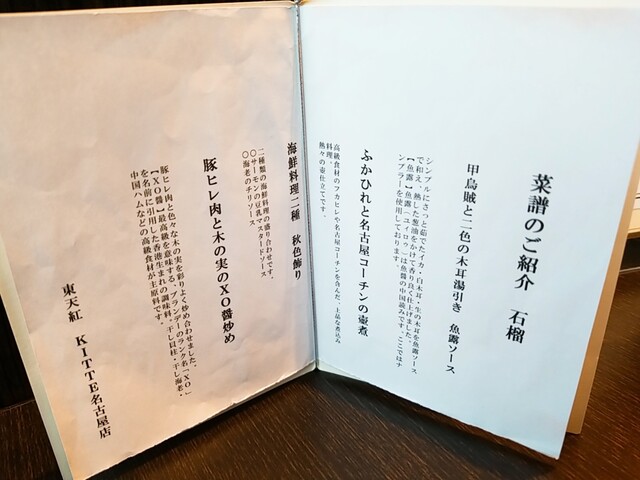 菜譜のご紹介　石榴
甲烏賊と二色の木耳湯引き　魚露ソース
シンプルにさっと茹でたイカ・白木耳・生の木耳を魚露ソース
で和え、熱した葱油をかけて香り良く仕上げました。
【魚露】魚露（ユイロゥ）は魚醤の中国読みです。ここではナ
ンプラーを使用しております。
ふかひれと名古屋コーチンの壷煮
高級食材のフカヒレや名古屋コーチンを含んだ、上品な煮込み
料理。
熱々の壷仕立てです。
海鮮料理二種　秋色飾り
二種類の海鮮料理の盛り合わせです。
〇サーモンの豆乳マスタードソース
〇海老のチリソース
豚ヒレ肉と木の実のXO醤炒め
豚ヒレ肉と色々な木の実を彩りよく炒め合わせました。
【XO醤】最高級を意味する、ブランデーのランク名「XO」
を名前に引用した香港生まれの調味料。干し貝柱・干し海老・
中国ハムなどの高級食材が主原料です。
東天紅　KITTE名古屋店